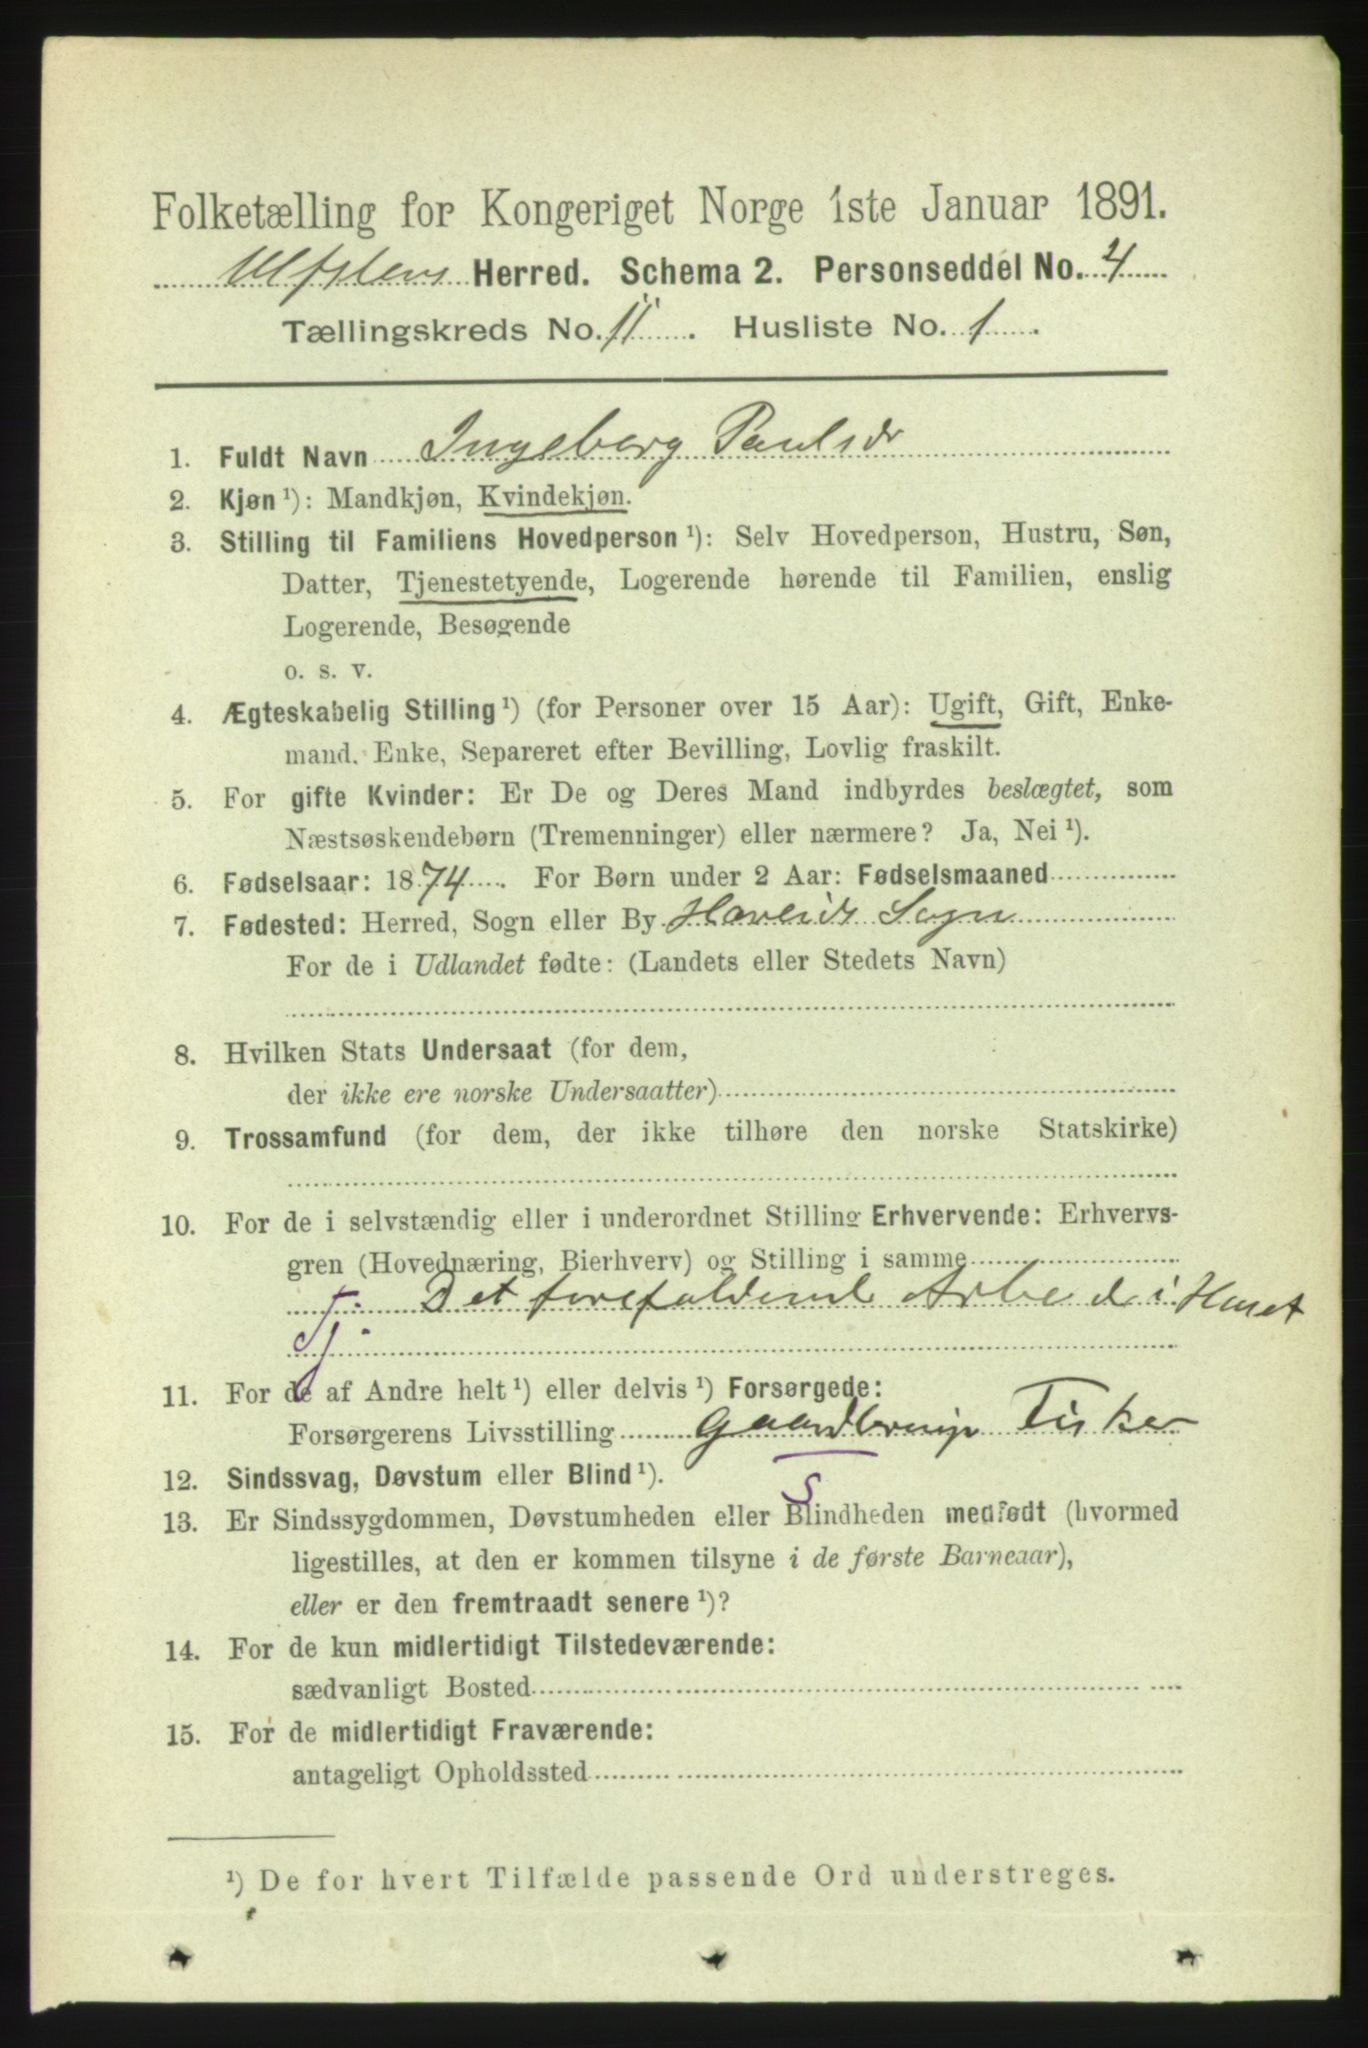 Folketælling for Kongeriget Norge 1ste Januar 1891.
Ulfsten Herred. Schema 2. Personseddel No. 4
Tællingskreds No. 11. Husliste No. 1.
1. Fuldt Navn Ingeborg Paulsdr
2. Kjøn ¹): Mandkjøn, Kvindekjøn.
3. Stilling til Familiens Hovedperson ¹): Selv Hovedperson, Hustru, Søn,
Datter, Tjenestetyende, Logerende hørende til Familien, enslig
Logerende, Besøgende
o. s. v.
4. Ægteskabelig Stilling ¹) (for Personer over 15 Aar): Ugift, Gift, Enke-
mand, Enke, Separeret efter Bevilling, Lovlig fraskilt.
5. For gifte Kvinder: Er De og Deres Mand indbyrdes beslægtet, som
Næstsøskendebørn (Tremenninger) eller nærmere? Ja, Nei ¹).
6. Fødselsaar: 1874. For Børn under 2 Aar: Fødselsmaaned
7. Fødested: Herred, Sogn eller By Sogn
For de i Udlandet fødte: (Landets eller Stedets Navn)
8. Hvilken Stats Undersaat (for dem,
der ikke ere norske Undersaatter)
9. Trossamfund (for dem, der ikke tilhøre den norske Statskirke)
10. For de i selvstændig eller i underordnet Stilling Erhvervende: Erhvervs-
gren (Hovednæring, Bierhverv) og Stilling i samme
Tj. Det forefaldende Arbeide i Huset
11. For de af Andre helt ¹) eller delvis ¹) Forsørgede:
Forsørgerens Livsstilling Gaardbruger Fisker
S
12. Sindssvag, Døvstum eller Blind ¹).
13. Er Sindssygdommen, Døvstumheden eller Blindheden medfødt (hvormed
ligestilles, at den er kommen tilsyne i de første Barneaar),
eller er den fremtraadt senere ¹)?
14. For de kun midlertidigt Tilstedeværende:
sædvanligt Bosted
15. For de midlertidigt Fraværende:
antageligt Opholdssted
¹) De for hvert Tilfælde passende Ord understreges.